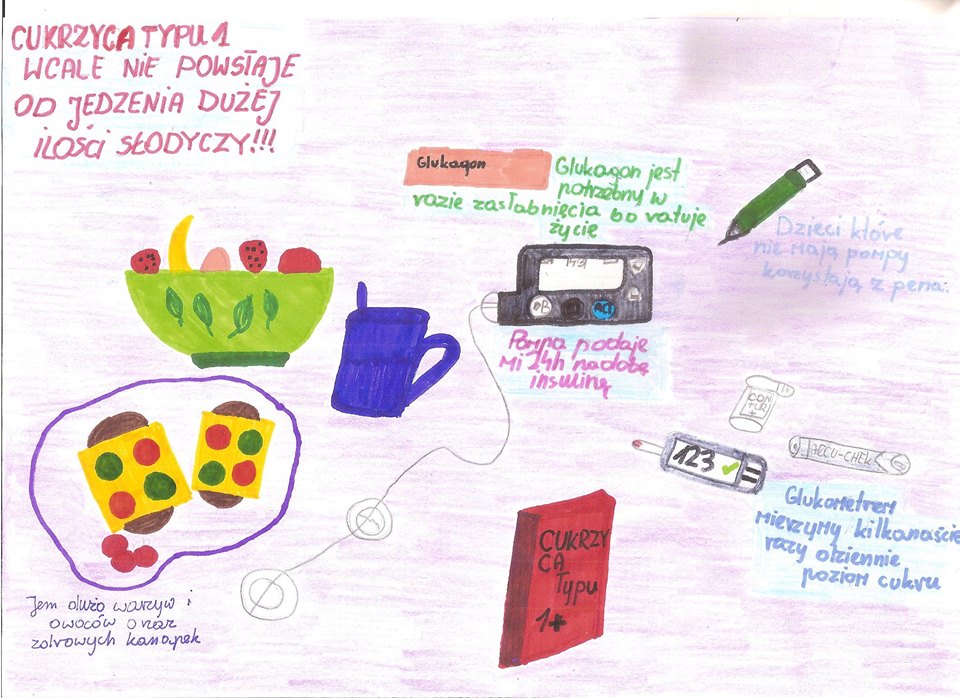 CUKRZYCA TYPU 1
WCALE NIE POWSTAJE
OD JEDZENIA DUŻEJ
ILOŚCI SŁODYCZY!!!
Glukagon
Glukagon jest
potrzebny w
razie zasłabnięcia bo ratuje
życie
Dzieci które
nie mają pompy
komystają z pena.
Pompa podaje
mi 24h na dobę
insulinę
CON
TUR
+
ACCU-CHEK
123
Glukometrem
mierzymy kilkanaście
razy dziennie
poziom cukru
CUKRZY
CA
Typu
1
Jem dużo warzyw i
owoców oraz
zdrowych kanapek